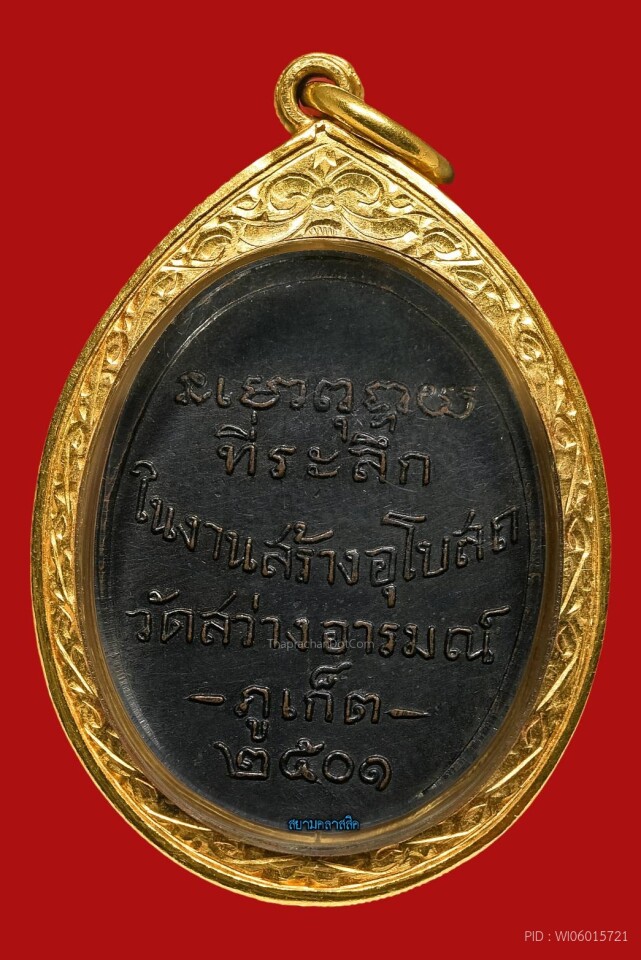 ที่ระลึก
ในงานสร้างอุโบสถ
วัดสว่างอารมณ์
ThaprachanDotCom
-ภูเก็ต-
๒๕๐๑
สยามคลาสสิค
PID : WI06015721